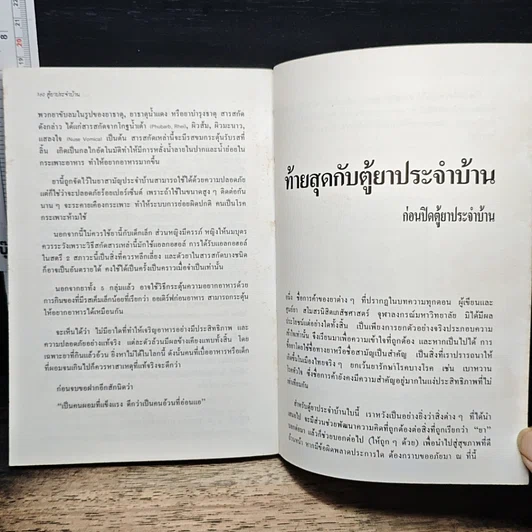 ๖๙๐ ตู้ยาประจำบ้าน
พวกยาขับลมในรูปของยาธาตุ, ยาธาตุน้ำแดง หรือยาบำรุงธาตุ สารสกัด
ดังกล่าว ได้แก่สารสกัดจากโกฐน้ำเต้า (Rhubarb, Rhei), ผิวส้ม, ผิวมะนาว,
แสลงใจ (Nux Vomica) เป็นต้น สารสกัดเหล่านี้จะมีรสขมกระตุ้นรับรสที่
ลิ้น เกิดเป็นกลไกอัตโนมัติทำให้มีการหลั่งน้ำลายในปากและน้ำย่อยใน
กระเพาะอาหาร ทำให้อยากอาหารมากขึ้น
ยานี้ถูกจัดไว้ในยาสามัญประจำบ้านสามารถใช้ได้ด้วยความปลอดภัย
แต่ก็ใช่ว่าจะปลอดภัยร้อยเปอร์เซ็นต์ เพราะถ้าใช้ในขนาดสูง ๆ ติดต่อกัน
นาน ๆ จะระคายเคืองกระเพาะ ทำให้ระบบการย่อยผิดปกติ คนเป็นโรค
กระเพาะห้ามใช้
นอกจากนี้ไม่ควรใช้ยานี้กับเด็กเล็ก ส่วนหญิงมีครรภ์ หญิงให้นมบุตร
ควรระวังเพราะวิธีสกัดสารเหล่านี้มักใช้แอลกอฮอล์ การได้รับแอลกอฮอล์
ในสตรี ๒ สภาวะนี้เป็นสิ่งที่ควรหลีกเลี่ยง และตัวยาในสารสกัดบางชนิด
ก็อาจเป็นอันตรายได้ คงใช้ได้เป็นครั้งเป็นคราวเมื่อจำเป็นเท่านั้น
นอกจากยาทั้ง ๕ กลุ่มแล้ว อาจใช้วิธีกระตุ้นความอยากอาหารด้วย
การกินของที่มีรสเค็มเล็กน้อยที่เรียกว่า ออเดิร์ฟก่อนอาหาร สามารถกระตุ้น
ให้อยากอาหารได้เหมือนกัน
จะเห็นได้ว่า ไม่มียาใดที่ทำให้เจริญอาหารอย่างมีประสิทธิภาพ และ
ความปลอดภัยอย่างแท้จริง แต่ละตัวล้วนมีผลข้างเคียงแทบทั้งสิ้น โดย
เฉพาะยาที่กินแล้วอ้วน ยิ่งหาไม่ได้ในโลกนี้ ดังนั้นคนที่เบื่ออาหารหรือเด็ก
ที่ผอมจนเกินไปก็ควรหาสาเหตุที่แท้จริงจะดีกว่า
ก่อนจบขอฝากอีกสักนิดว่า
“เป็นคนผอมที่แข็งแรง ดีกว่าเป็นคนอ้วนที่อ่อนแอ”
ท้ายสุดกับตู้ยาประจำบ้าน
ก่อนปิดตู้ยาประจำบ้าน
อนึ่ง ชื่อการค้าของยาต่าง ๆ ที่ปรากฏในบทความทุกตอน ผู้เขียนและ
ศูนย์ยา สโมสรนิสิตเภสัชศาสตร์ จุฬาลงกรณ์มหาวิทยาลัย มิได้มีผล
ประโยชน์แต่อย่างใดทั้งสิ้น เป็นเพียงการยกตัวอย่างจริงประกอบความ
เข้าใจเท่านั้น จึงเรียนมาเพื่อความเข้าใจที่ถูกต้อง และหากเป็นไปได้ การ
ซื้อยาโดยใช้ชื่อทางยาหรือชื่อสามัญเป็นสำคัญ เป็นสิ่งที่เราปรารถนาให้
เกิดขึ้นในเมืองไทยจริง ๆ ยกเว้นยารักษาโรคบางโรค เช่น เบาหวาน
โรคหัวใจ ซึ่งชื่อการค้ายังคงมีความสำคัญอยู่มากในแง่ประสิทธิภาพที่ไม่
เท่าเทียมกัน
สำหรับตู้ยาประจำบ้านใบนี้ เราหวังเป็นอย่างยิ่งว่าสิ่งต่าง ๆ ที่ได้นำ
เสนอไป จะมีส่วนช่วยพัฒนาความคิดที่ถูกต้องต่อสิ่งที่ถูกเรียกว่า “ยา”
แล้วก็ช่วยบอกต่อไป (ให้ถูก ๆ ด้วย) เพื่อนำไปสู่สุขภาพที่ดี
หากมีข้อผิดพลาดประการใด ต้องกราบขออภัยมา ณ ที่นี้